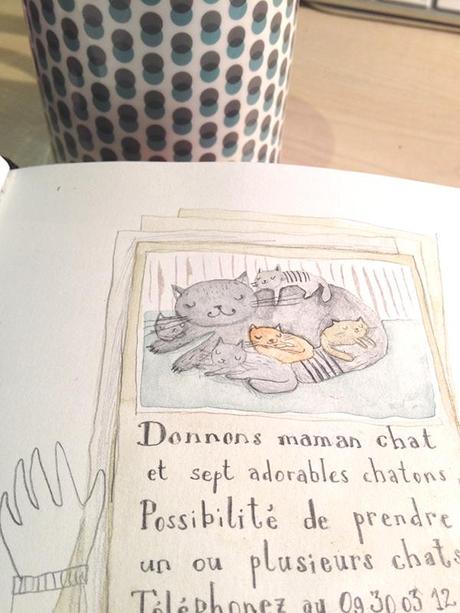 Donnons maman chat
et sept adorables chatons.
Possibilité de prendre
un ou plusieurs chats
Téléphonez au 09 30 03 12